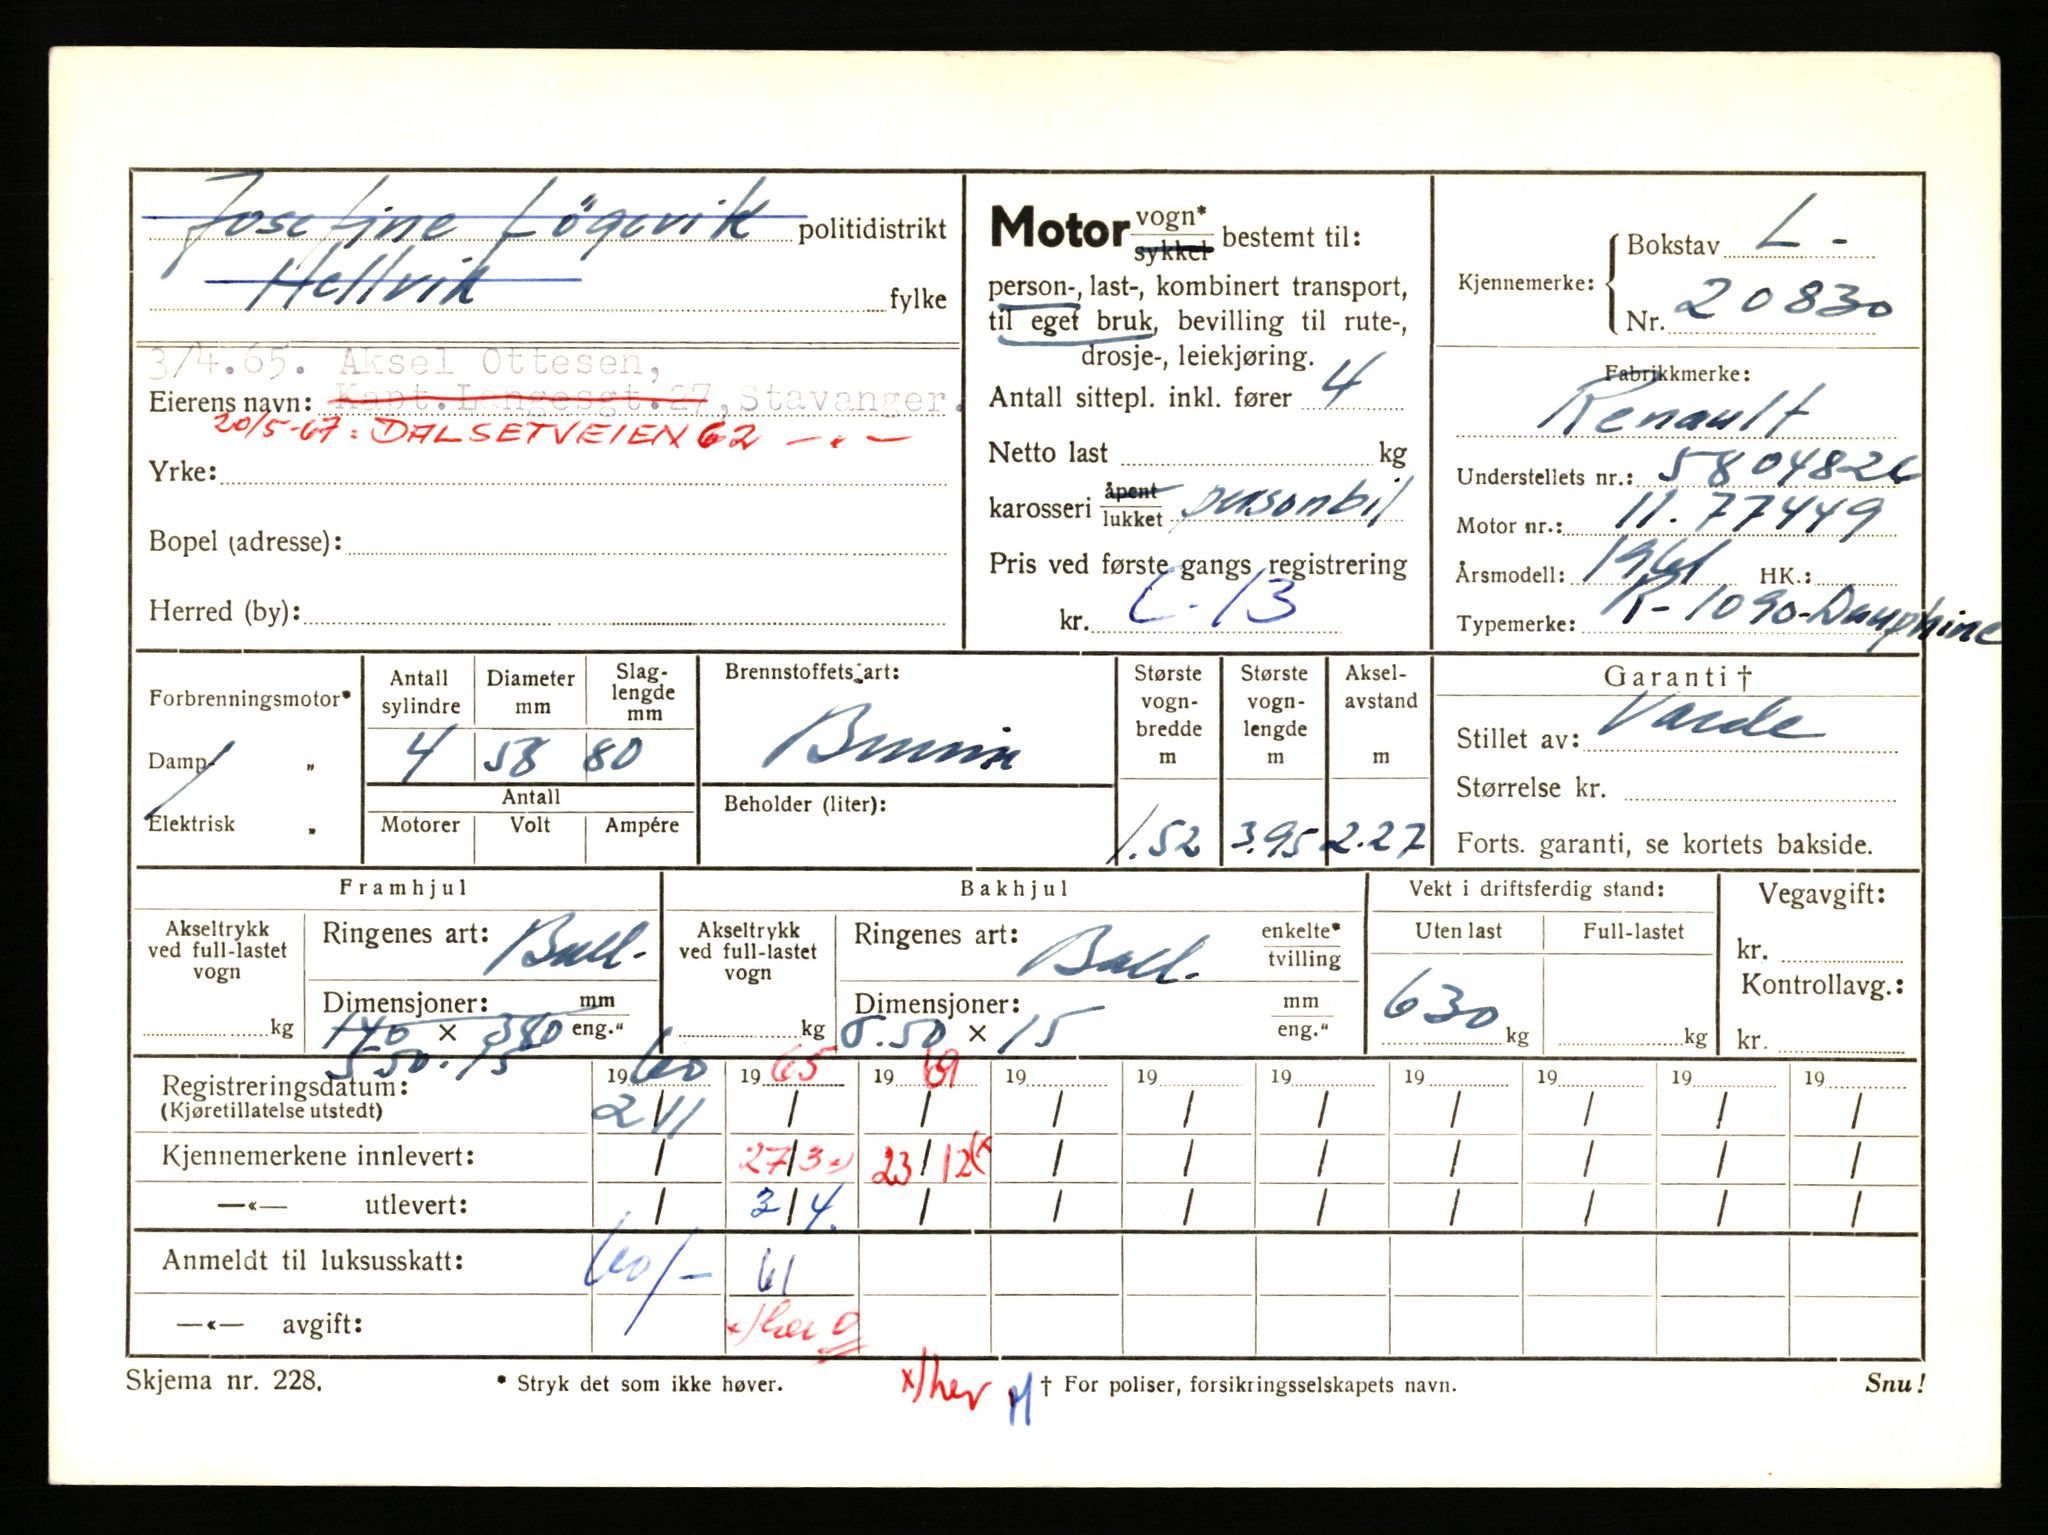 Josefine Lögevik politidistrikt
Hellvik fylke
3/4.65. Aksel Ottesen,
Eierens navn: Kapt.Langesgt.27, Stavanger.
20/5-67: DALSETVEIEN 62 — . —
Yrke:
Bopel (adresse):
Herred (by):
Motor vogn* sykkel bestemt til:
person-, last-, kombinert transport,
til eget bruk, bevilling til rute-,
drosje-, leiekjøring.
Antall sittepl. inkl. fører 4
Netto last kg
karosseri åpent lukket personbil
Pris ved første gangs registrering
kr. C-13
Kjennemerke: Bokstav L-
Nr. 20830
Fabrikkmerke:
Renault
Understellets nr.: 5804826
Motor nr.: 11.77449
Årsmodell: 1961 HK.:
Typemerke: R-1090-Dauphine
Forbrenningsmotor*
Damp- „
Elektrisk „
Antall sylindre Diameter mm Slaglengde mm
4 58 80
Antall
Motorer Volt Ampére
Brennstoffets art:
Bensin
Beholder (liter):
Største vogn-bredde m Største vogn-lengde m Aksel-avstand m
1.52 3.95 2.27
Garanti †
Stillet av: Varde
Størrelse kr.
Forts. garanti, se kortets bakside.
Framhjul
Akseltrykk ved full-lastet vogn
kg
Ringenes art: Ball.
Dimensjoner: mm eng."
140 × 380
550.15
Bakhjul
Akseltrykk ved full-lastet vogn
kg
Ringenes art: Ball. enkelte* tvilling
Dimensjoner: mm eng."
5.50 × 15
Vekt i driftsferdig stand:
Uten last Full-lastet
630 kg kg
Vegavgift:
kr.
Kontrollavg.:
kr.
Registreringsdatum: 1960 1965 1969 19 19 19 19 19 19 19
(Kjøretillatelse utstedt) 2/11 / / / / / / / / /
Kjennemerkene innlevert: / 27/3 x) 23/12 (x / / / / / / /
—«— utlevert: / 3/4. / / / / / / / /
Anmeldt til luksusskatt: 60/- 61
—«— avgift: x) her 0
Skjema nr. 228. * Stryk det som ikke høver. x) her † For poliser, forsikringsselskapets navn. Snu!